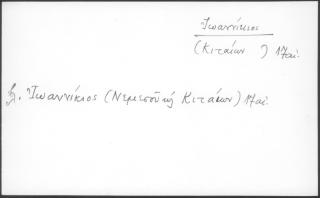 Ἰωαννίκιος
(Κιταίων ) 17 αἰ.
Ἰωαννίκιος (Νεμεσοῦ κῃ Κιταίων) 17 αἰ.